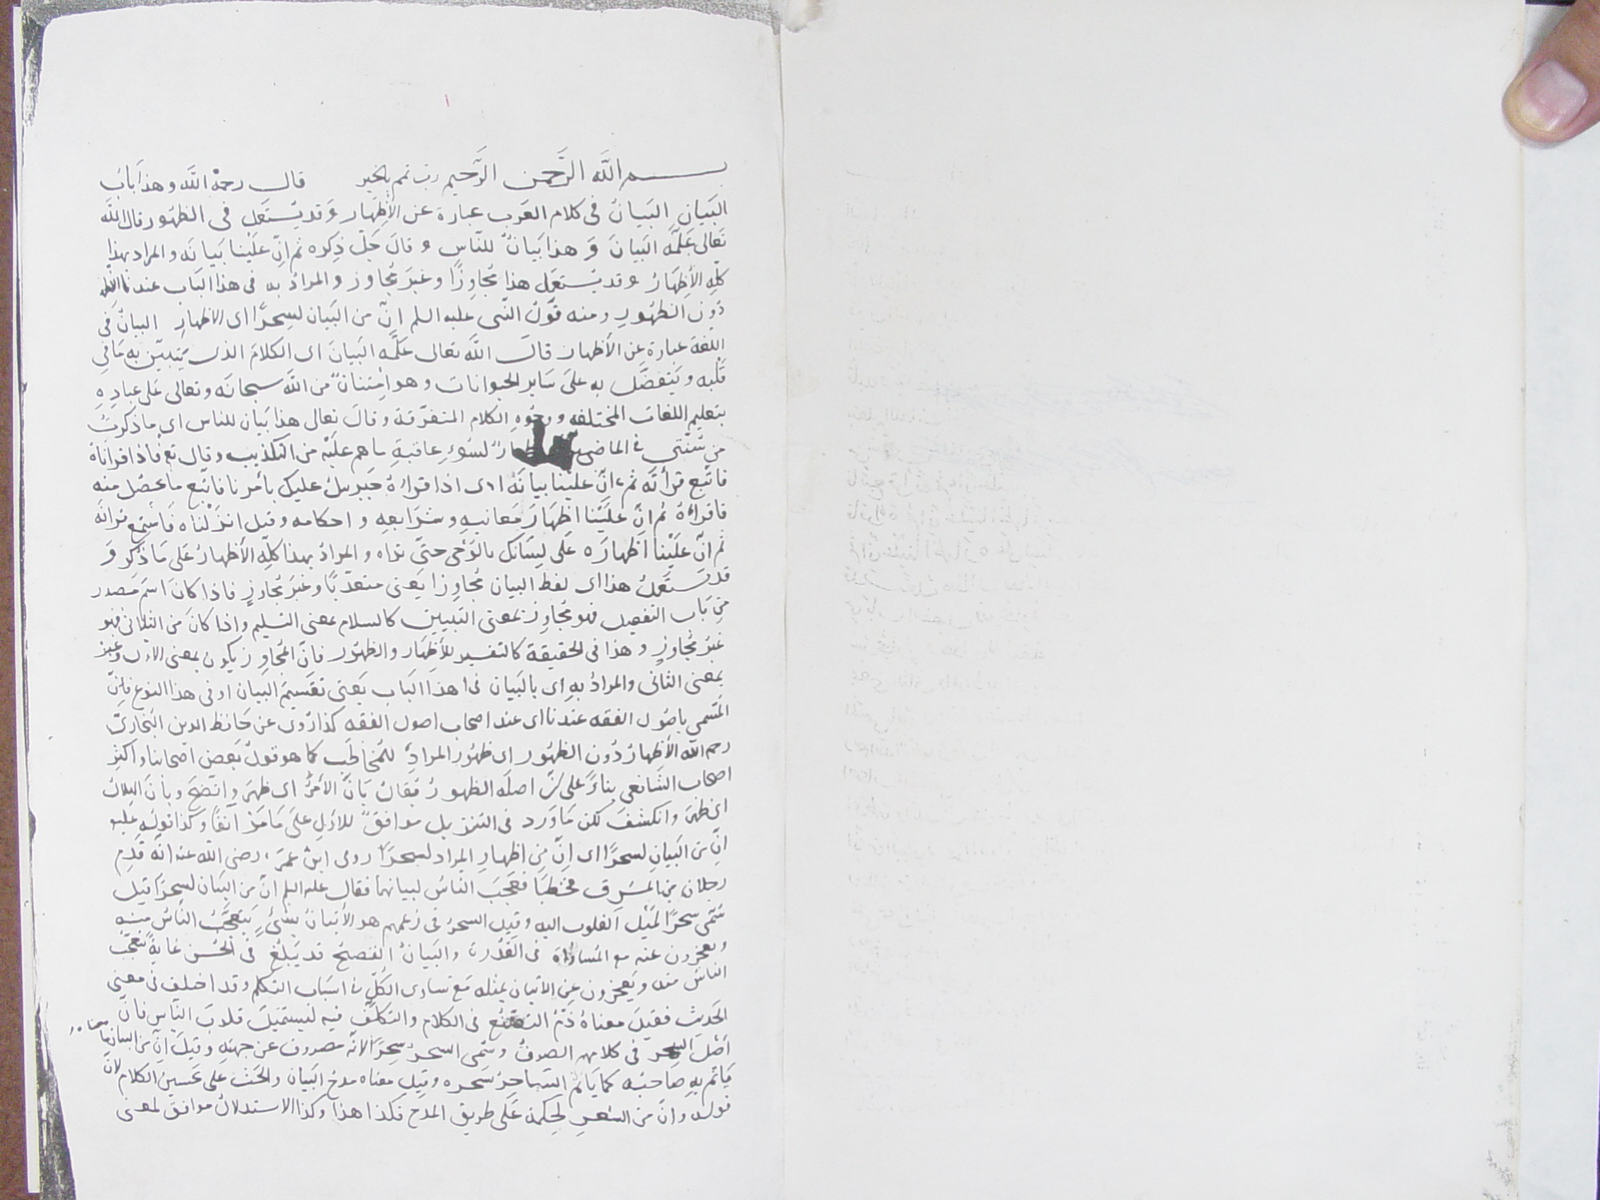 بسم الله الرحمن الرحيم رب تمم بالخير قال رحمه الله وهذا باب
البيان البيان فى كلام العرب عبارة عن الإظهار وقد يستعمل فى الظهور قال الله
تعالى علمه البيان وهذا بيان للناس وقال جل ذكره ثم ان علينا بيانه والمراد بهذا
كله الإظهار وقد يستعمل هذا مجاوزا وغير مجاوز والمراد به فى هذا الباب عندنا الاظهار
دون الظهور ومنه قول النبى عليه السلم ان من البيان لسحرا اى الاظهار البيان فى
اللغة عبارة عن الأظهار قال الله تعالى علمه البيان اى الكلام الذى يتبين به ما فى
قلبه ويتفضل به على ساير الحيوانات وهو امتنان من الله سبحانه وتعالى على عباده
بتعليم اللغات المختلفه ووجوه الكلام المتفرقة وقال تعالى هذا بيان للناس اى ما ذكرت
من سنتى فى الماضين لسوء عاقبة ما هم عليه من التكذيب وقال تع فاذا قراناه
فاتبع قرأنه ثم ان علينا بيانه اى اذا قراه جبريل عليك بأمرنا فاتبع ما يحصل منه
فاقرأه ثم ان علينا اظهار معانيه وشرايعه واحكامه وقيل انزلناه فاستمع قرانه
ثم ان علينا اظهاره على لسانك بالوحى حتى تراه والمراد بهذا كله الأظهار على ما ذكر و
قد يستعمل هذا اى لفظ البيان مجاوزا يعنى متعديا وغير مجاوز فاذا كان اسم مصدر
من باب التفعيل فهو مجاوز بمعنى التبيين كالسلام بمعنى التسليم واذا كان من الثلاثى فهو
غير مجاوز وهذا فى الحقيقة كالتفسير للأظهار والظهور فان المجاوز يكون بمعنى الاول وغيره
بمعنى الثانى والمراد به اى بالبيان فى هذا الباب يعنى تقسيم البيان او فى هذا النوع فان
المسمى باصول الفقه عندنا اى عند اصحاب اصول الفقه كذا روى عن حافظ الدين البخارى
رحم الله الأظهار دون الظهور اى ظهور المراد للمخاطب كما هو قول بعض اصحابنا واكثر
اصحاب الشافعى بناء على ان اصله الظهور يقال بان الأمر اى ظهر واتضح وبان الهلال
اى ظهر وانكشف لكن ما ورد فى التنزيل موافق للاول على ما مر آنفا وكذا قوله عليه
ان من البيان لسحرا اى ان من اظهار المراد لسحرا روى ابن عمر رضى الله عنه انه قدم
رجلان من المشرق فخطبا فعجب الناس لبيانهما فقال عليه السلم ان من البيان لسحرا قيل
سمى سحرا لميل القلوب اليه وقيل السحر فى زعمهم هو الأتيان بشئ يتعجب الناس منه
ويعجزون عنه مع المساواة فى القدرة والبيان الفصيح قد يبلغ فى الحسن غاية يتعجب
الناس منه ويعجزون عن الأتيان بمثله مع تساوى الكل فى اسباب التكلم وقد اختلف فى معنى
الحديث فقيل معناه ذم التصنع فى الكلام والتكلف فيه ليستميل قلوب الناس فان
اصل السحر فى كلامهم الصرف وسمى السحر سحرا لانه مصروف عن جهته وقيل ان من البيان ما
يأثم به صاحبه كما يأثم الساحر بسحره وقيل معناه مدح البيان والحث على تحسين الكلام لان
قوله وان من الشعر لحكمة على طريق المدح فكذا هذا وكذا الاستدلال موافق لمعنى